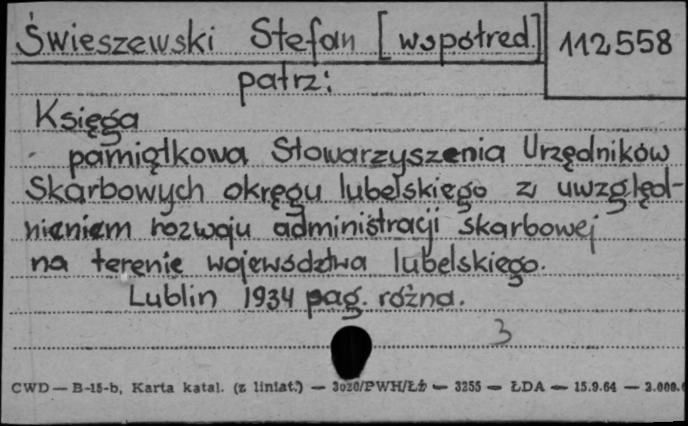 Świeszewski Stefan [współred.] 112558
patrz:
Księga
pamiątkowa Stowarzyszenia Urzędników
Skarbowych okręgu lubelskiego z uwzględ-
nieniem rozwoju administracji skarbowej
na terenie województwa lubelskiego.
Lublin 1934 pag. różna.
3
CWD — B-15-b, Karta katal. (z liniat.) — 3020/PWH/Łż — 3255 — ŁDA — 15.9.64 — 2.000.